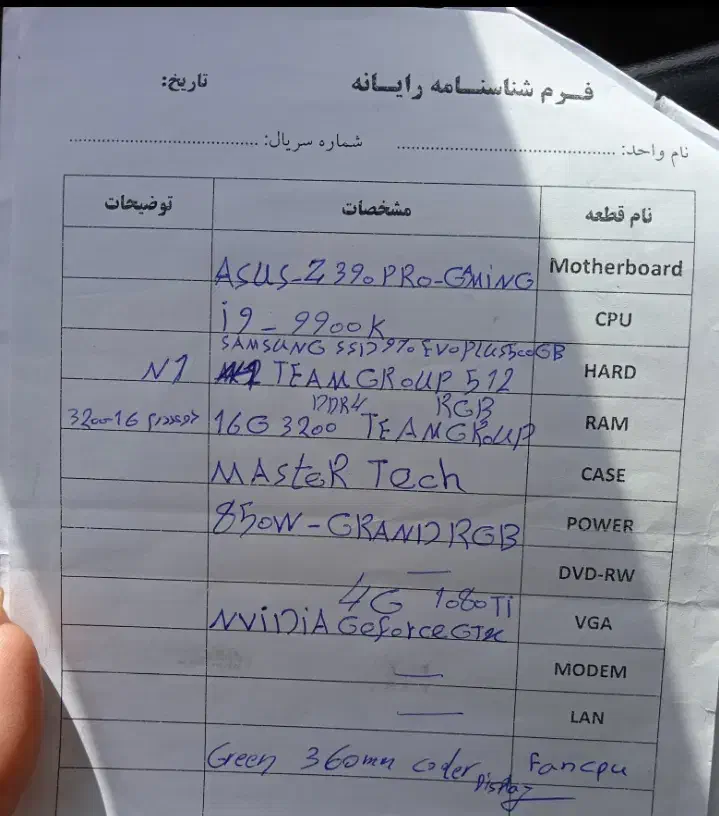 فرم شناسنامه رایانه
تاریخ:
نام واحد: ........................ شماره سریال: ........................
نام قطعه مشخصات توضیحات
Motherboard ASUS-Z390 PRO-GAMiNG
CPU i9-9900K
HARD SAMSUNG SSD 970 EVO PLUS 500GB
TEAMGROUP 512 N1
RAM DDR4 RGB
16G 3200 TEAMGROUP 3200-16
CASE MASteR Tech
POWER 850W-GRAND RGB
DVD-RW —
VGA 4G 1080Ti
NViDiA GeforceGTX
MODEM —
LAN —
Fancpu Green 360mm cooler
Display